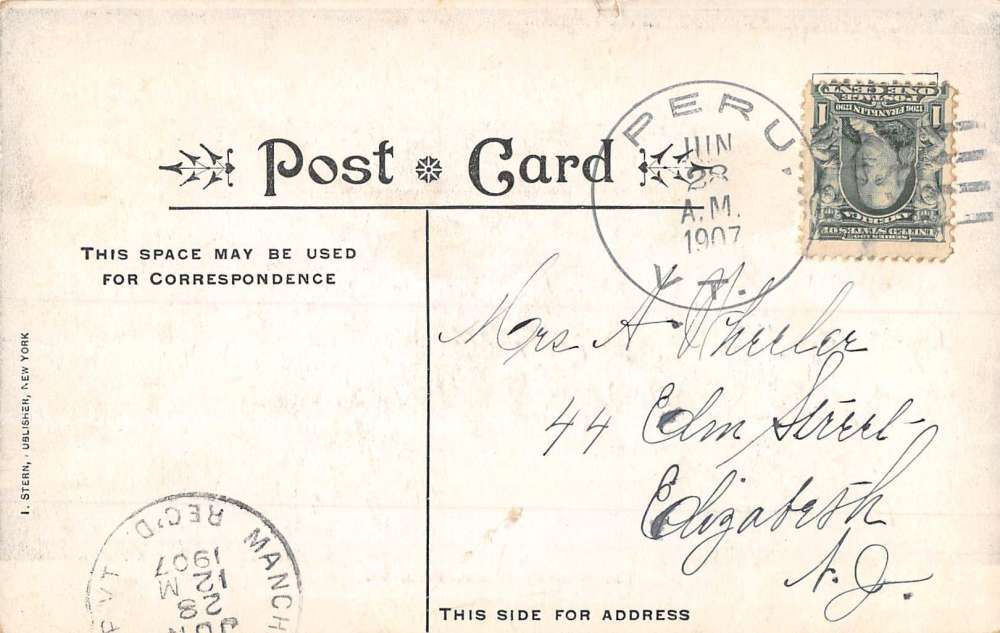 Post Card
THIS SPACE MAY BE USED
FOR CORRESPONDENCE
PERU.
JUN
28
A.M.
1907
VT.
ONE CENT
POSTAGE
1706 FRANKLIN 1790
1 1
UNITED STATES OF
AMERICA
Mrs A. Wheeler
44 Elm Street
Elizabeth
N. J.
I. STERN, PUBLISHER, NEW YORK
MANCH
VT.
REC'D
28
12 M
1907
THIS SIDE FOR ADDRESS